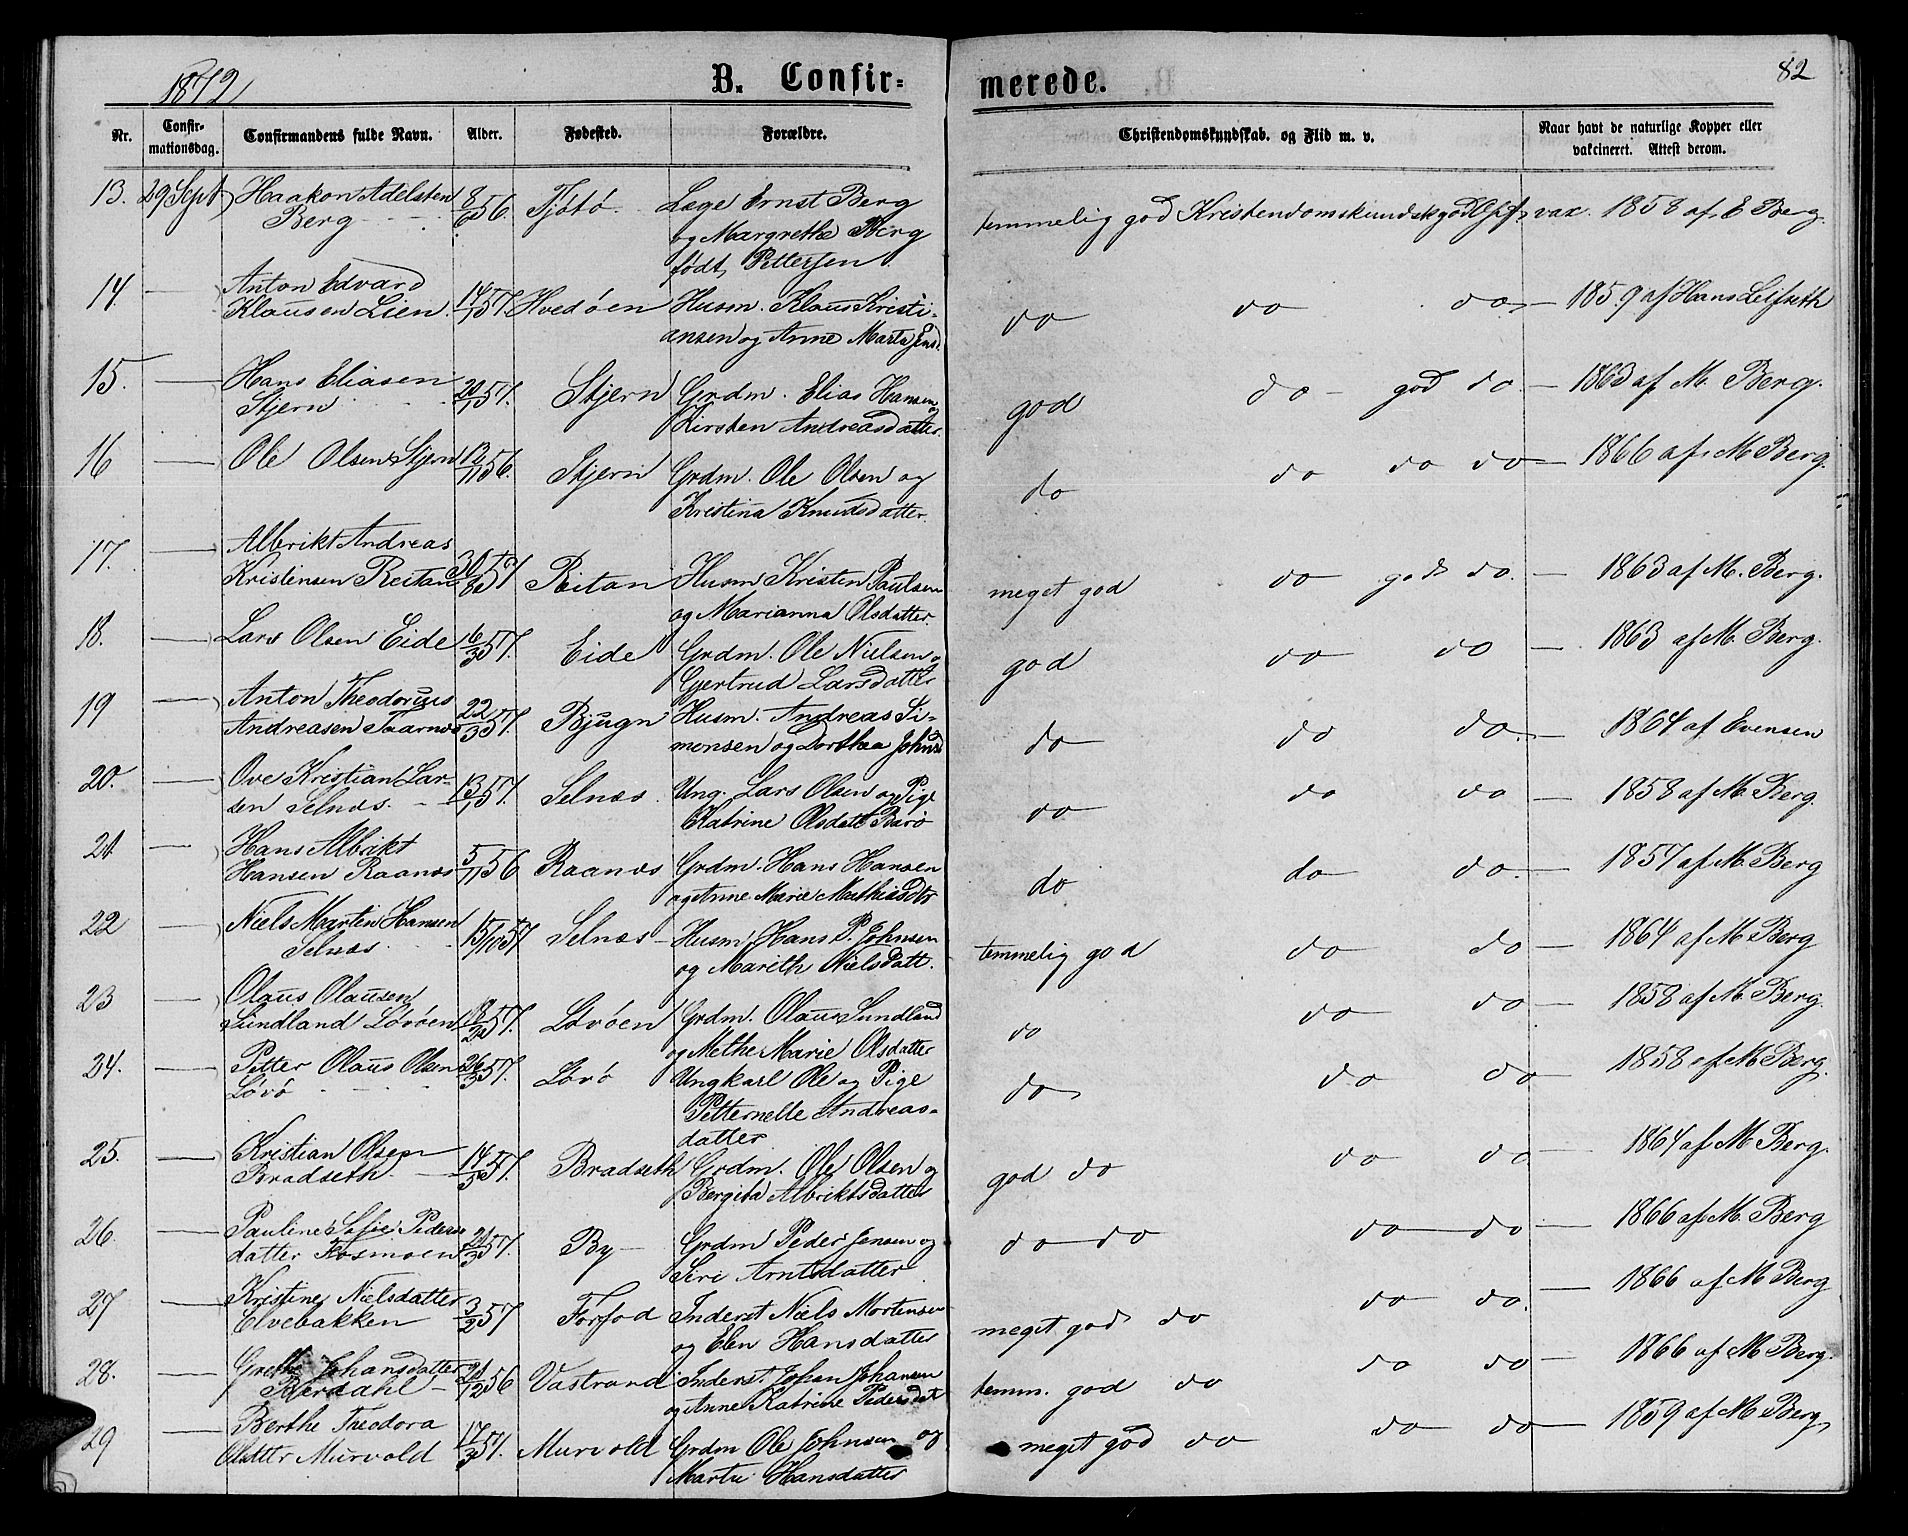 1872
B. Confir-
merede.
82
Nr.
Confir-
mationsdag.
Confirmandens fulde Navn.
Alder.
Fødested.
Forældre.
Christendomskundskab. og Flid m. v.
Naar havt de naturlige Kopper eller
vakcineret. Attest derom.
13. 29 Sept Haakon Adelsten 8/6 56. Tjøtø. Læge Ernst Berg temmelig god Kristendomskundsk god vac. 1858 af E Berg.
Berg og Margrethe Berg
født Pettersen
14 — Anton Edvard
Klausen Lien 14/1 57. Hvedøen Husm. Klaus Kristi- do do do — 1859 af Hans Leifseth
ansen og Anne Marta Jensd.
15. — Hans Eliasen 20/1 57. Stjern Grdm. Elias Hansen og god do - god do — 1863 af M. Berg.
Stjern Kirsten Andreasdatter.
16 — Ole Olsen Stjern 12/11 56. Stjern Grdm. Ole Olsen og do do do do — 1866 af M Berg.
Kristina Knudsdatter.
17. — Albrikt Andreas
Kristensen Reitan 30/8 57 Reitan Husm Kristen Paulsen meget god do god do. — 1863 af M. Berg.
og Marianna Olsdatter.
18. — Lars Olsen Eide 6/3 57. Eide Grdm. Ole Nielsen og god do do — 1863 af M. Berg.
Gjertrud Larsdatter
19 — Anton Theodorius
Andreasen 22/3 57. Bjugn Husm. Andreas Si- do do do. — 1864 af Evensen
monsen og Dorthea Johnsd
20. — Ove Kristian Lar- 13/1 57. Selnæs. Ung. Lars Olsen og Pige do do do — 1858 af M. Berg.
sen Selnæs. Katrine Olsdatt Barø
21 — Hans Albrikt
Hansen Raanæs 5/11 56 Raanæs Grdm. Hans Hansen do do do. — 1857 af M. Berg
og Anne Marie Mathiasdtr
22 — Niels Martin Hansen 15/10 57 Selnæs - Husm. Hans P. Johnsen temmelig god do do — 1864 af M Berg
Selnæs og Marith Nielsdatt.
23 — Olaus Olausen
Sundland Løvøen 57. Løvøen Grdm. Olaus Sundland do do do — 1858 af M. Berg.
og Methe Marie Olsdatter
24. — Petter Olaus Olsen 26/3 57. Løvø Ungkarl Ole og Pige do do do — 1858 af M Berg.
Løvø Petternelle Andreas-
datter
25. — Kristian Olsen
Bradseth 14/5 57. Bradseth Grdm. Ole Olsen og god do do do. — 1864 af M Berg.
Bergita Albriktsdatter
26. — Pauline Sofie Peders
datter Fosmoen 21/3 57. By - Grdm Peder Jensen og do do do do — 1866 af M. Berg
Siri Arntsdatter
27 — Kristine Nielsdatter
Elvebakken 3/2 57 Forfod Inderst Niels Mortensen meget god do do do. — 1866 af M Berg
og Elen Hansdatter
28. — Grethe Johansdatter
21/12 56 Vastrand Inderst. Johan Johansen temm. god do do do — 1866 af M Berg.
og Anne Katrine Pedersdat
29 — Berthe Theodora
Olsdatter Murvold 17/3 57. Murvold Grdm Ole Johnsen og meget god do do do — 1859 af M Berg
Marta Hansdatter